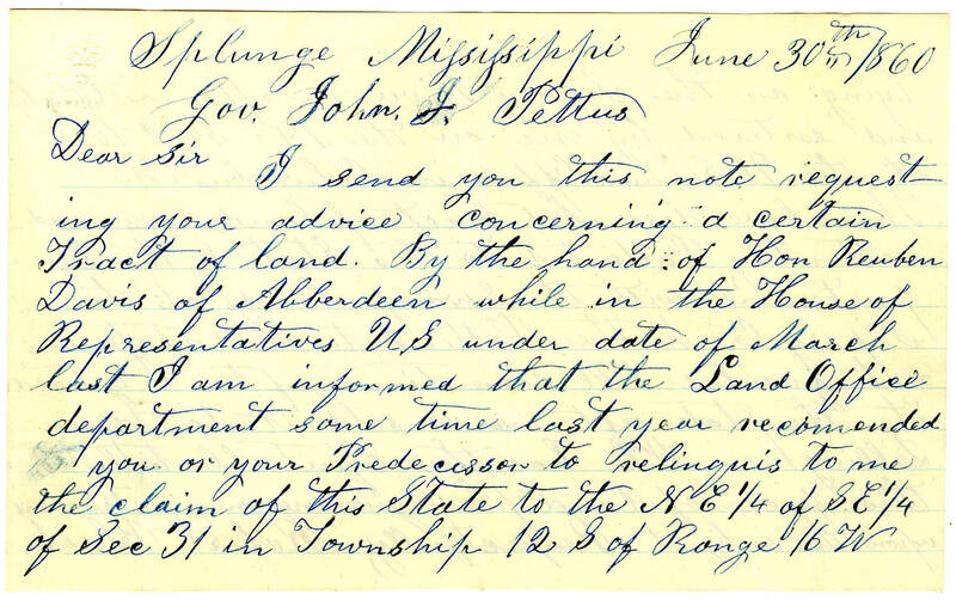 Splunge Mississippi June 30th 1860
Gov. John. J. Pettus
Dear sir
I send you this note request-
ing your advice concerning a certain
Tract of land. By the hand of Hon Reuben
Davis of Abberdeen while in the House of
Representatives US under date of March
last I am informed that the Land Office
department some time last year recomended
you or your Predecessor to relinquis to me
the claim of this State to the N E 1/4 of S E 1/4
of Sec 31 in Township 12 S of Range 16 W